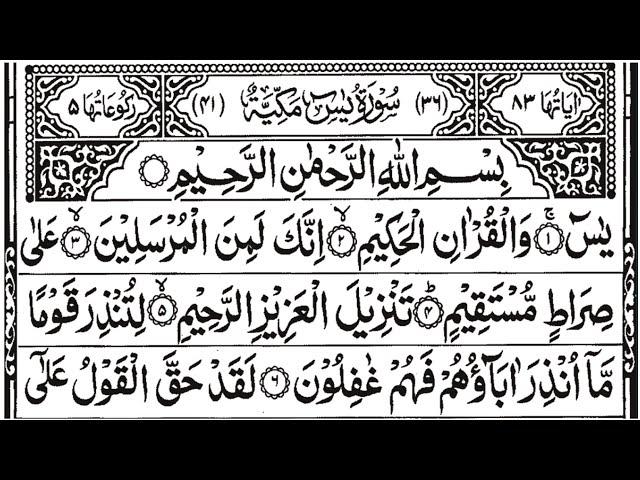 اٰيَاتُهَا ٨٣ (٣٦) سُوْرَةُ يٰسٓ مَكِّيَّةٌ (٤١) رُكُوْعَاتُهَا ٥
بِسْمِ اللّٰهِ الرَّحْمٰنِ الرَّحِيْمِ
يٰسٓ ۚ ١ وَالْقُرْاٰنِ الْحَكِيْمِ ۙ ٢ اِنَّكَ لَمِنَ الْمُرْسَلِيْنَ ۙ ٣ عَلٰى
صِرَاطٍ مُّسْتَقِيْمٍ ؕ ٤ تَنْزِيْلَ الْعَزِيْزِ الرَّحِيْمِ ۙ ٥ لِتُنْذِرَ قَوْمًا
مَّاۤ اُنْذِرَ اٰبَآؤُهُمْ فَهُمْ غٰفِلُوْنَ ٦ لَقَدْ حَقَّ الْقَوْلُ عَلٰٓى